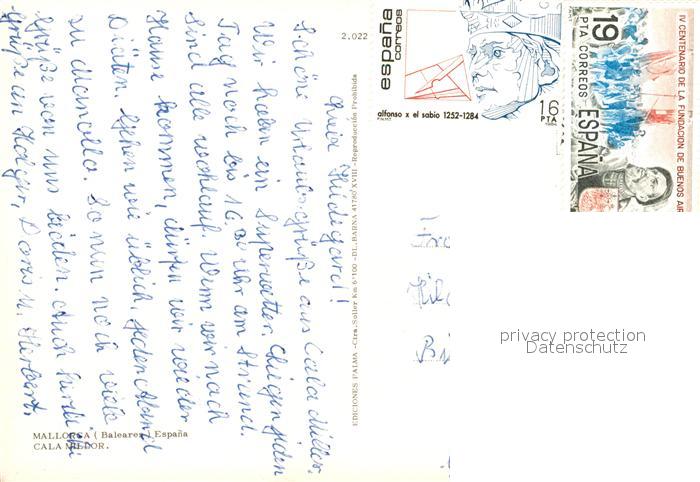 Schöne Urlaubsgrüße aus Cala Millor.
Wir haben ein Superwetter. Liegen jeden
Tag noch bis 16.30 Uhr am Strand.
Sind alle wohlauf. Wenn wir nach
Hause kommen, dürfen wir wieder
Diäten. Gehen wie üblich jeden Abend
zu Manolla. So nun noch viele
Grüße von uns beiden. Auch
Grüße an Holger, Doris u. Herbert.
2.022
EDICIONES PALMA -Ctra. Soller Km 6'100 -D.L. BARNA 41780 XVIII -Reproducción Prohibida
MALLORCA (Baleares) España
CALA MILLOR.
españa
correos
alfonso x el sabio 1252-1284
16
PTA
19
PTA CORREOS
ESPAÑA
IV CENTENARIO DE LA FUNDACION DE BUENOS AIR
privacy protection
Datenschutz